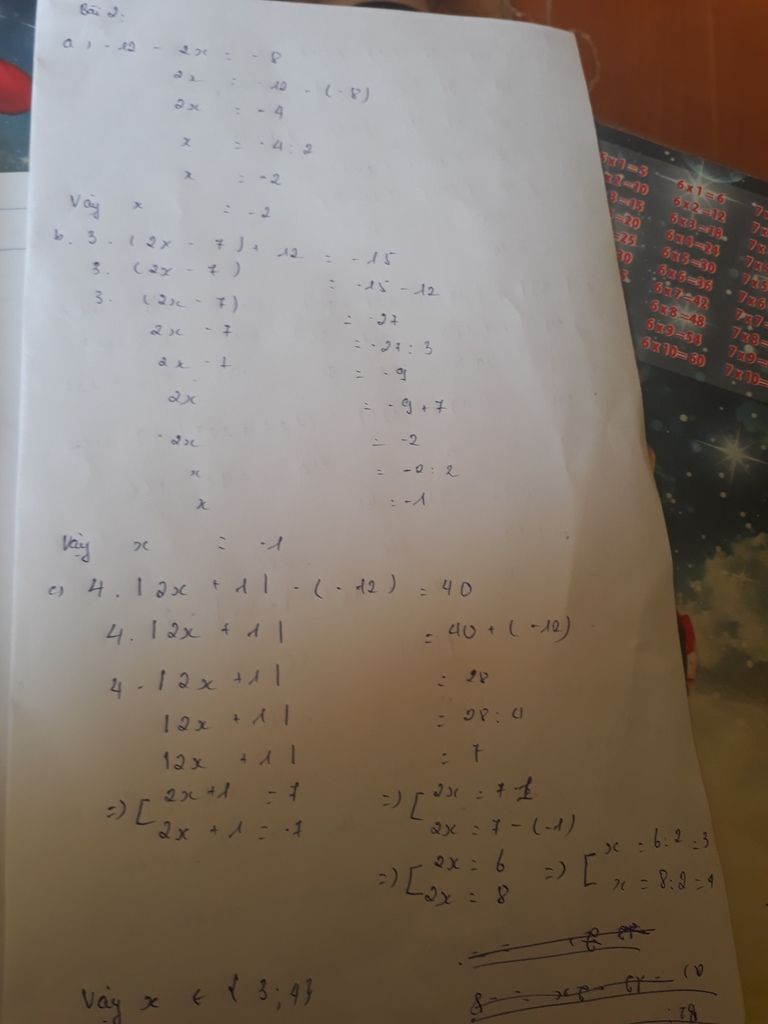 Bài 2:
a, -12 - 2x = -8
2x = -12 - (-8)
2x = -4
x = -4 : 2
x = -2
Vậy x = -2
b. 3. (2x - 7) + 12 = -15
3. (2x - 7) = -15 - 12
3. (2x - 7) = -27
2x - 7 = -27 : 3
2x - 7 = -9
2x = -9 + 7
2x = -2
x = -2 : 2
x = -1
Vậy x = -1
c, 4. |2x + 1| - (-12) = 40
4. |2x + 1| = 40 + (-12)
4. |2x + 1| = 28
|2x + 1| = 28 : 4
|2x + 1| = 7
=> [ 2x + 1 = 7 => [ 2x = 7 - 1
2x + 1 = -7 2x = 7 - (-1)
=> [ 2x = 6 => [ x = 6 : 2 = 3
2x = 8 x = 8 : 2 = 4
Vậy x ∈ { 3 ; 4 }
6 x 1 = 6
6 x 2 = 12
6 x 3 = 18
6 x 4 = 24
6 x 5 = 30
6 x 6 = 36
6 x 7 = 42
6 x 8 = 48
6 x 9 = 54
6 x 10 = 60